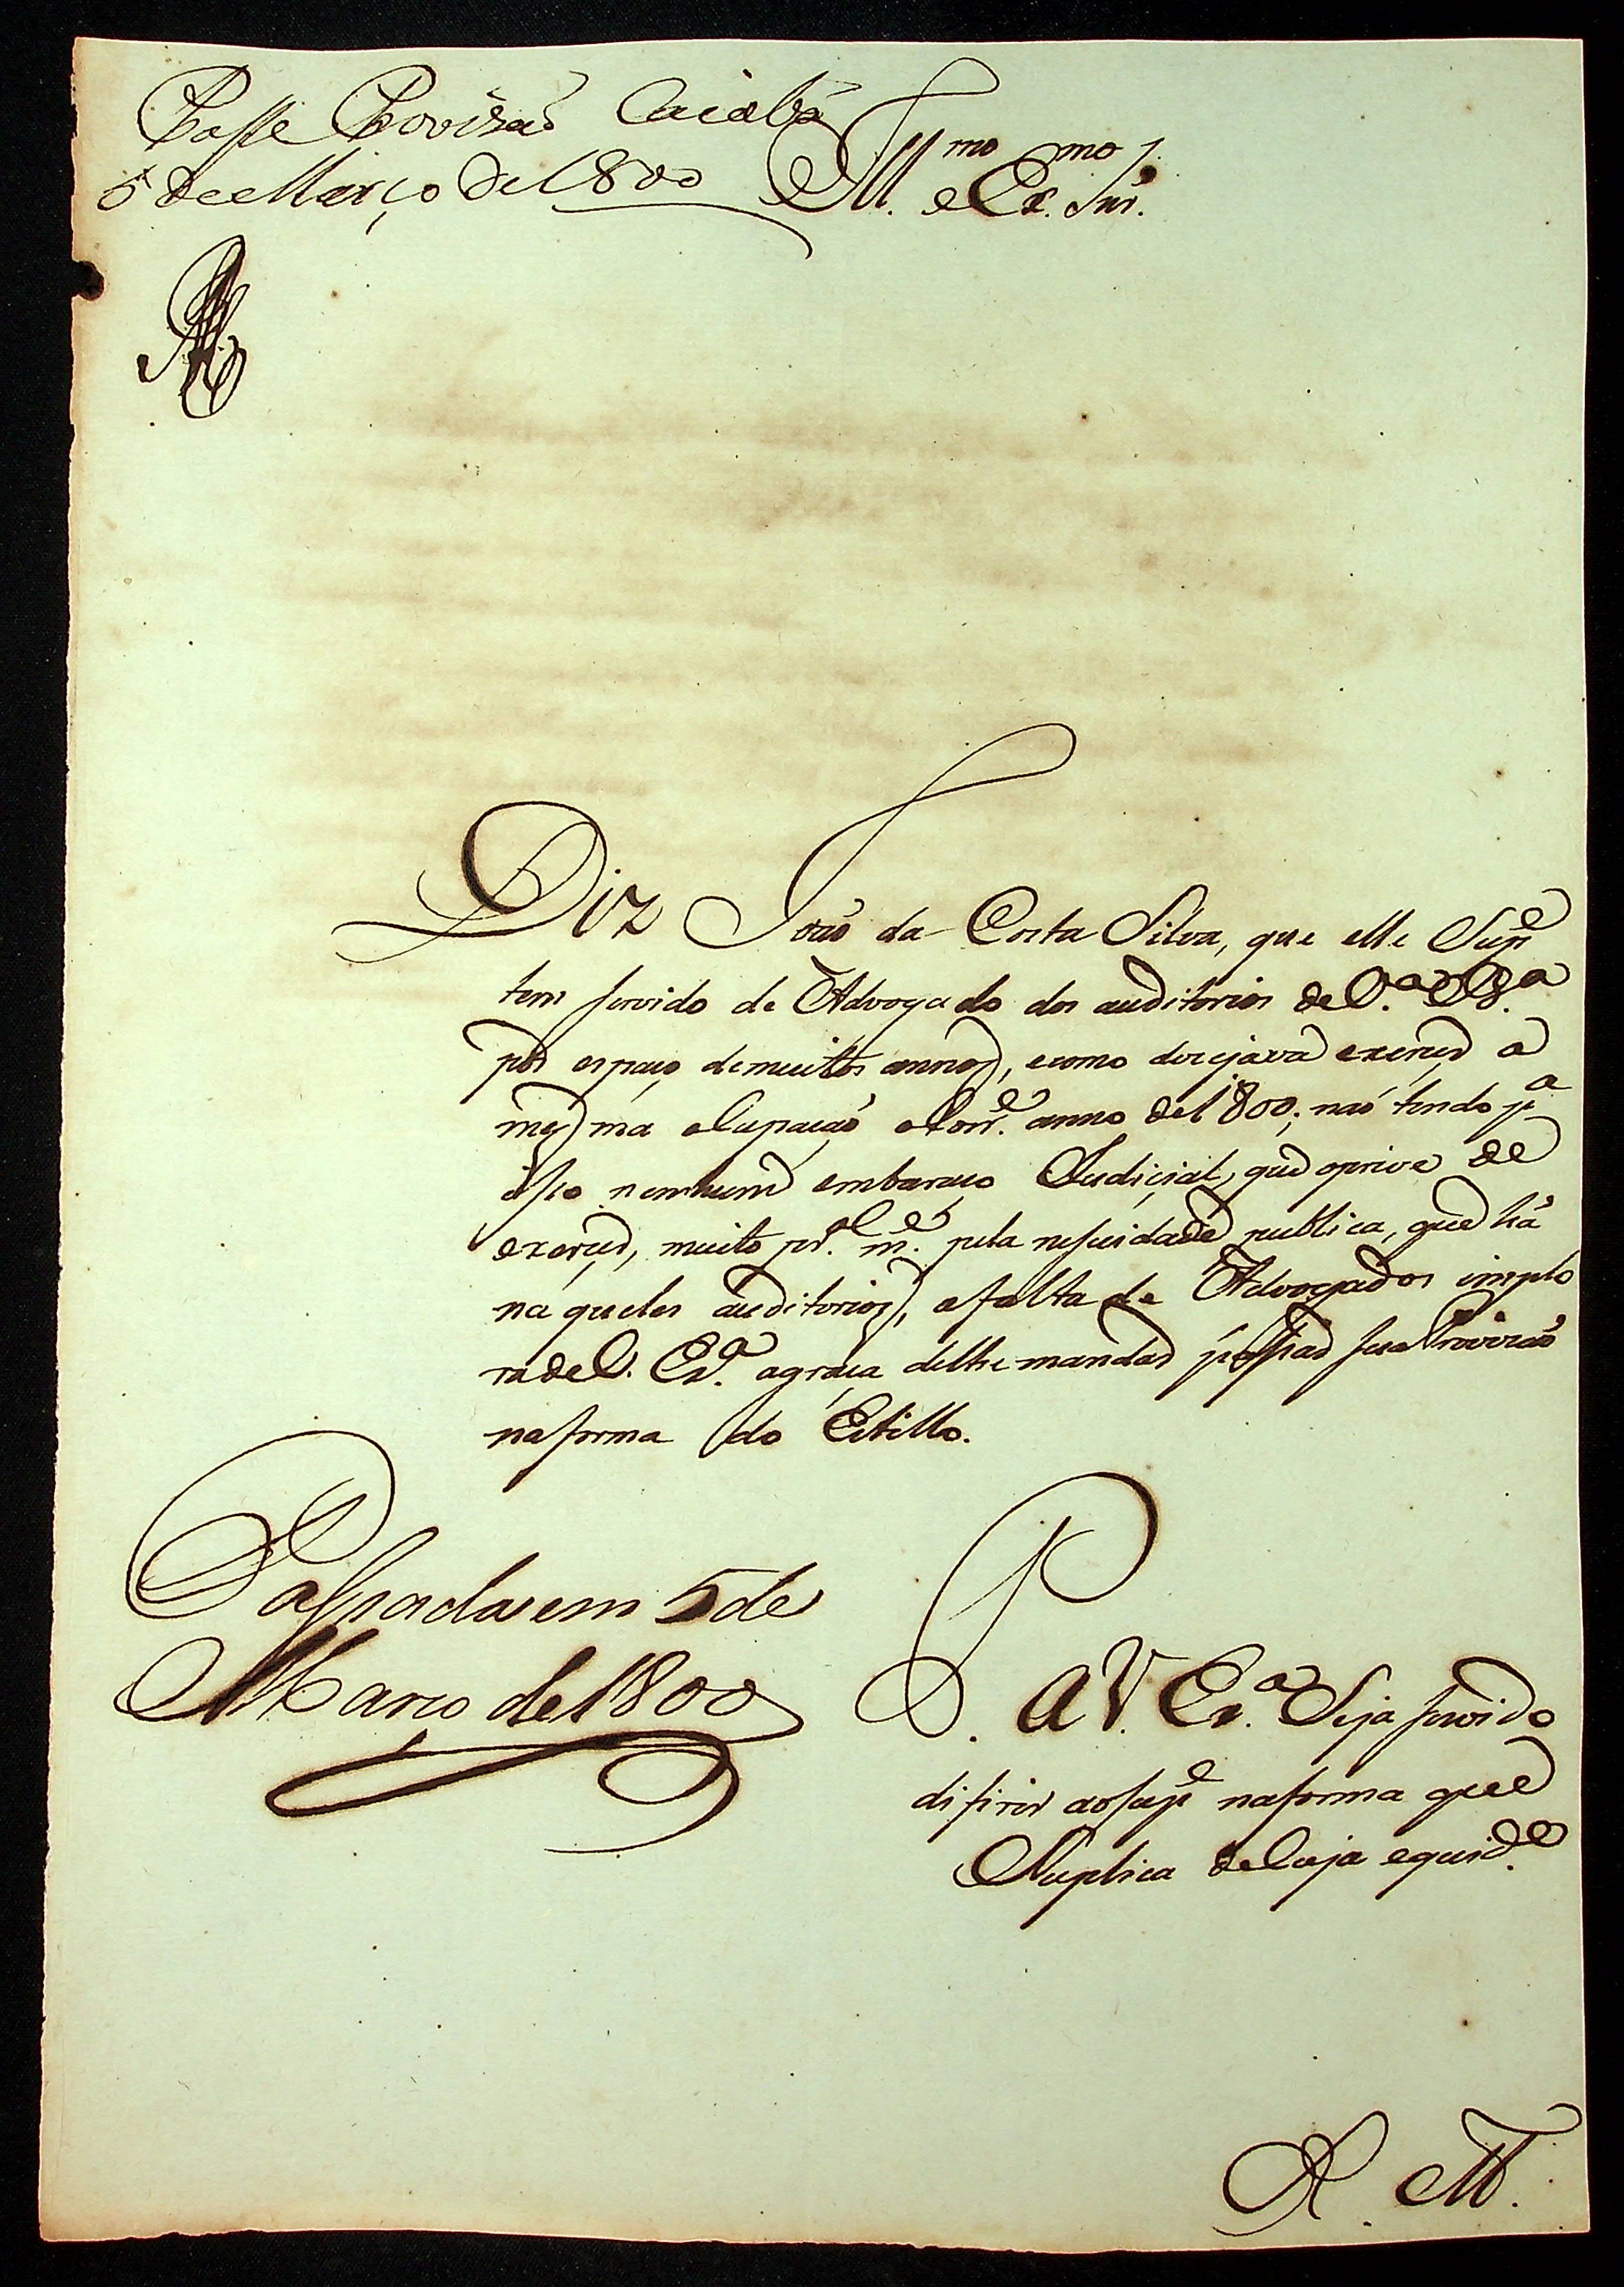 Passe Provizaõ Cuiabá
5 de Março de 1800
Ill.mo e Ex.mo Snr.
Diz Joaõ da Costa Silva, que elle Sup.e
tem servido de Advogado dos auditorios de V.a B.a
por espaço de muitos annos, e como dezejava exercer a
mesma ocupaçaõ o Corr.e anno de 1800; naõ tendo p.a
isso nemhum embaraço Judicial, que o prive de
exercer, muito pr.al m.e pela nesesidade publica, que há
na queles auditorios, e falta de Advogados implo
ra de V. Ex.a a graça de lhe mandar passar sua Provizaõ
na forma do Estillo.
Passada em 5 de
Março de 1800
P. a V. Ex.a Seja servido
difirir ao sup.e na forma que
Suplica de Cuja equid.e
R. M.